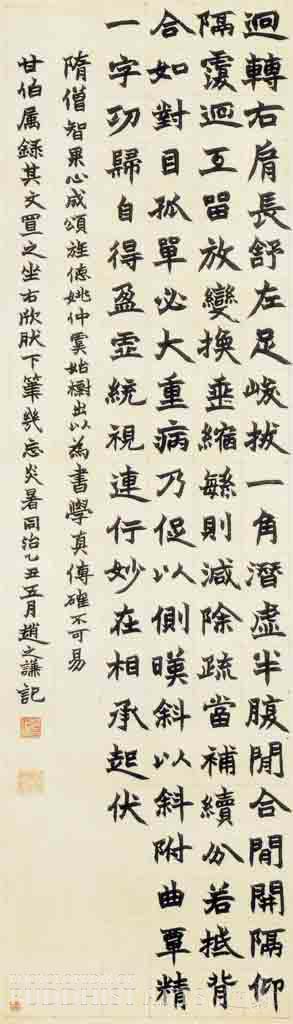 迴轉右肩長舒左足峻拔一角潛虛半腹閒合閒開隔仰
隔覆迴互留放變換垂縮緐則減除疏當補續分若抵背
合如對目孤單必大重病乃促以側暎斜以斜附曲覃精
一字功歸自得盈虛統視連行妙在相承起伏
隋僧智果心成頌旌德姚仲虞始出以為書學真傳確不可易
甘伯属錄其文置之坐右欣肰下筆幾忘炎暑同治乙丑五月趙之謙記